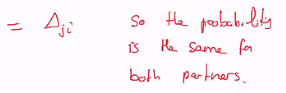 = Δji So the probability
is the same for
both partners.